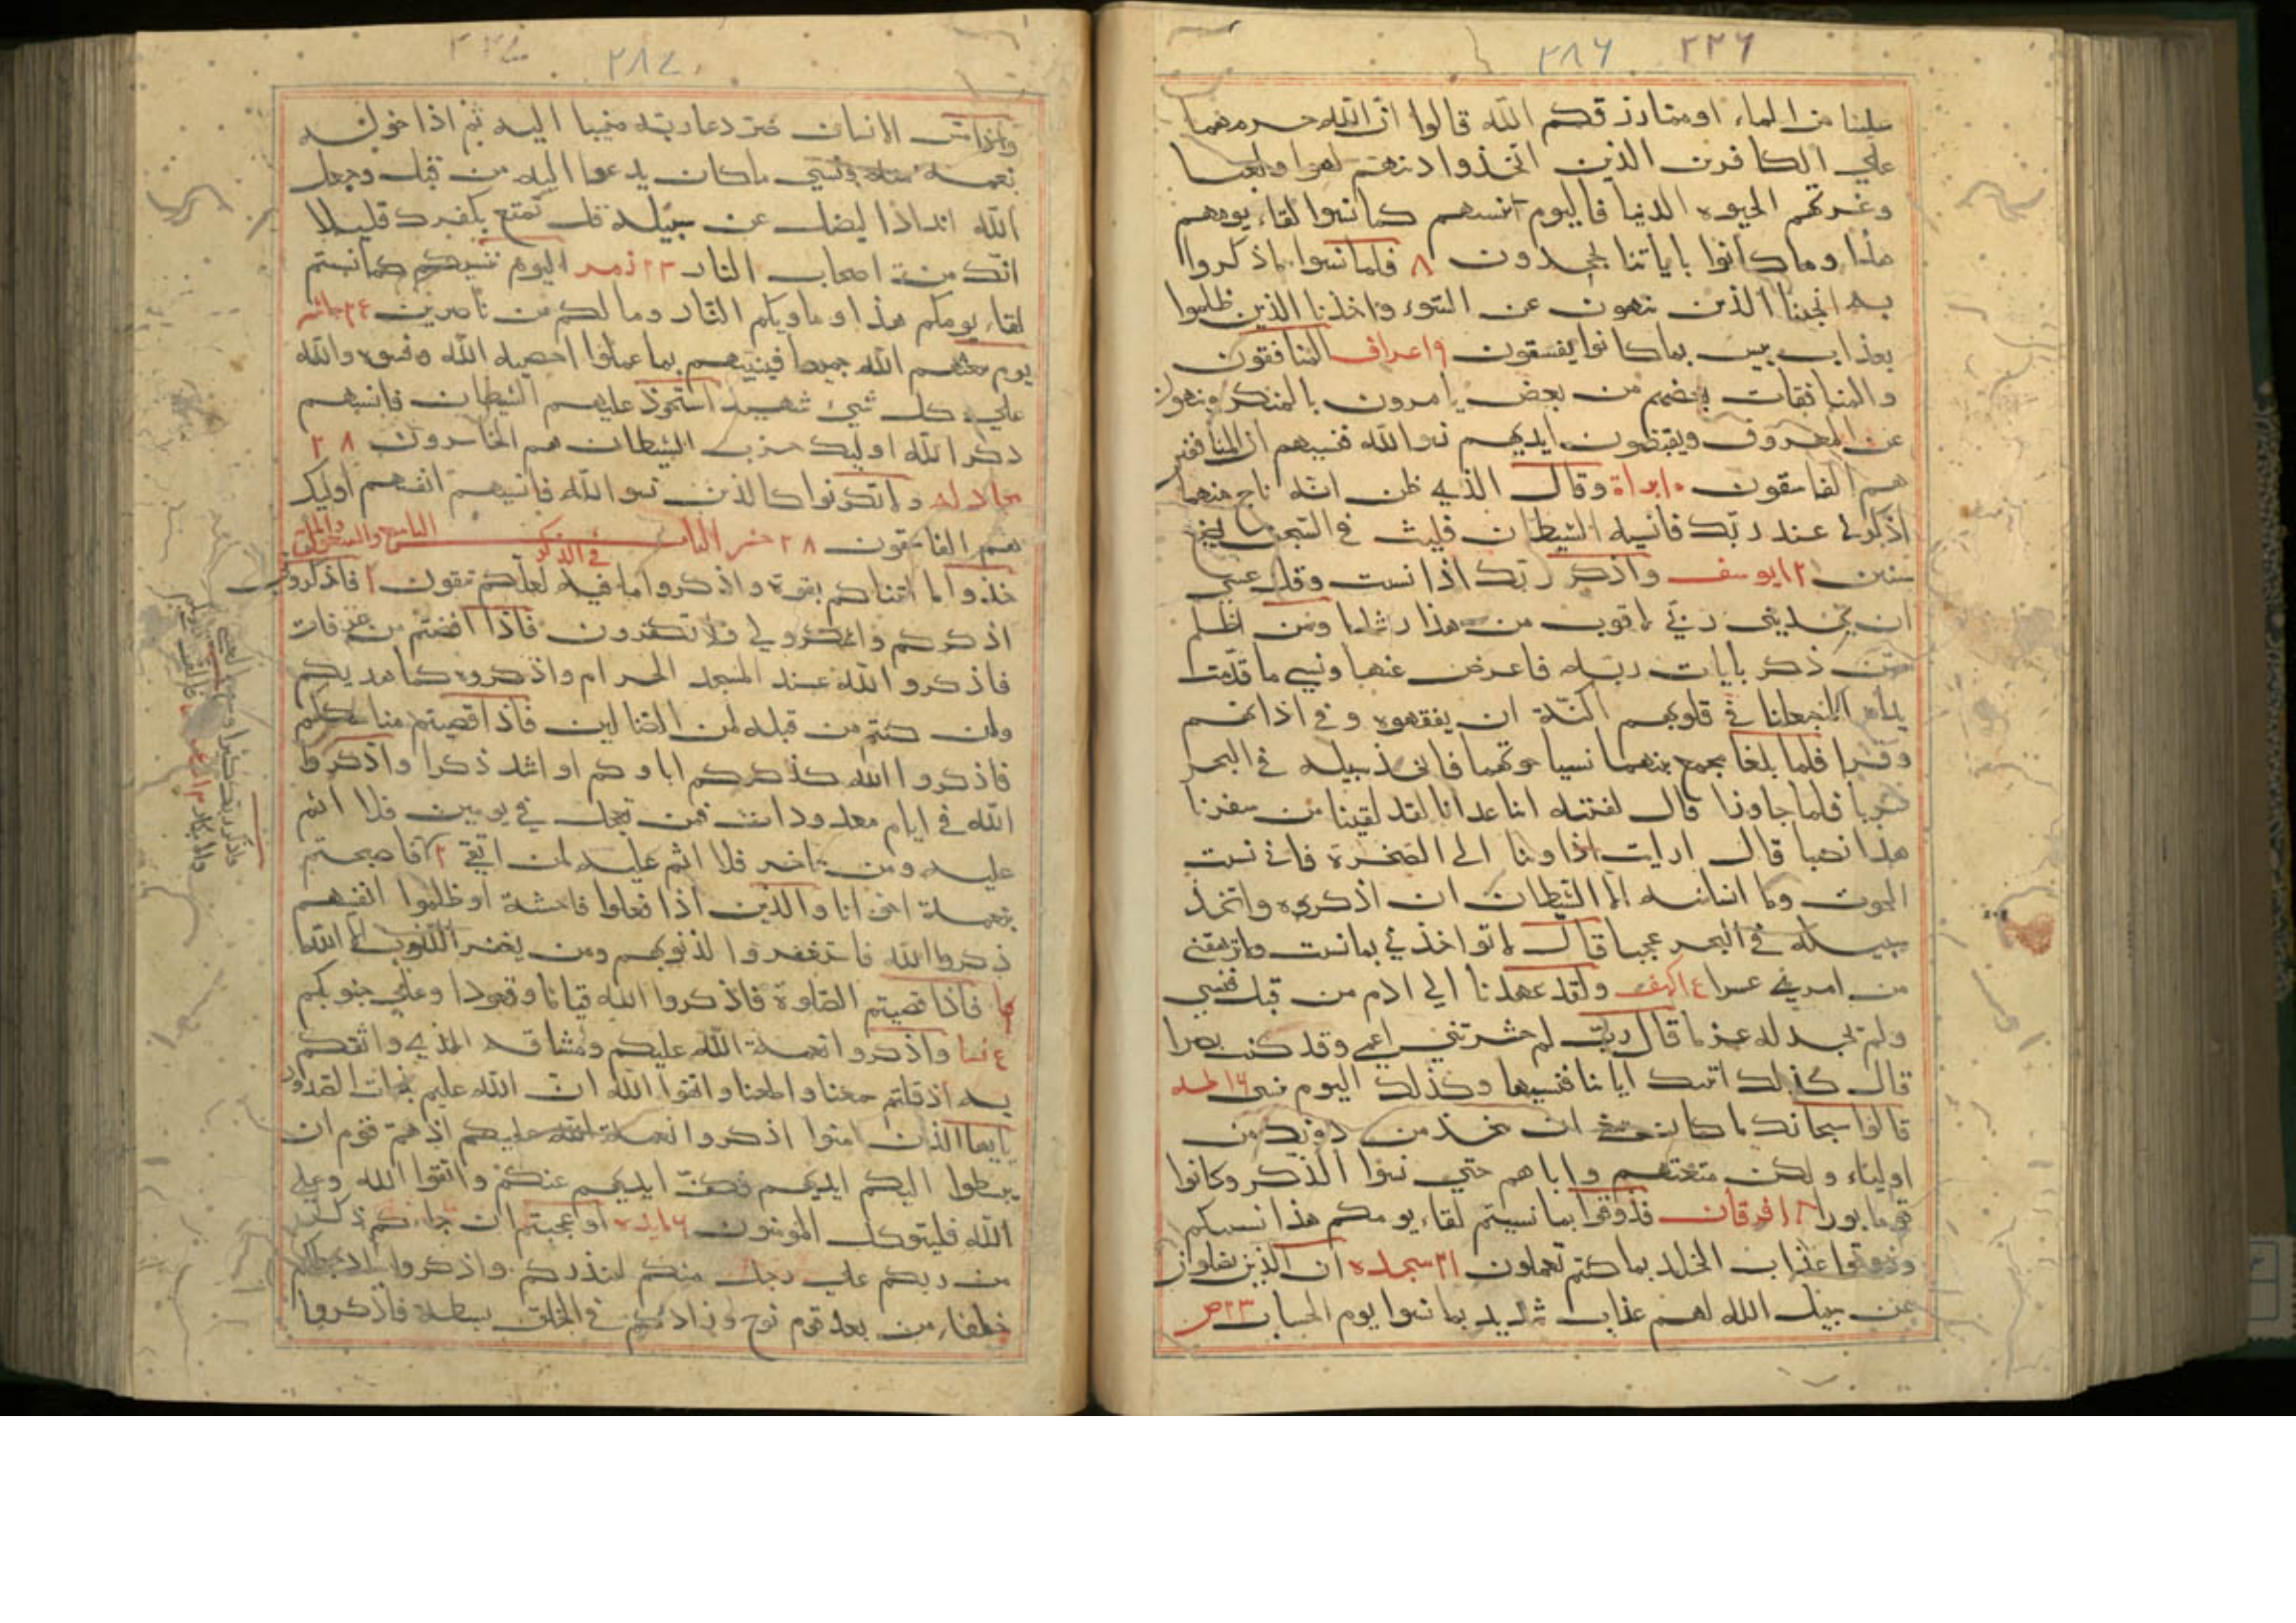 ٢٨٦ ٢٢٦
علينا من الماء او مما رزقكم الله قالوا ان الله حرمهما
علي الكافرين الذين اتخذوا دينهم لهوا ولعبا
وغرتهم الحيوه الدنيا فاليوم ننسهم كما نسوا لقاء يومهم
هذا وما كانوا باياتنا يجحدون ٨ فلما نسوا ما ذكروا
به انجينا الذين ينهون عن السوء واخذنا الذين ظلموا
بعذاب بيس بما كانوا يفسقون ٩ اعراف المنافقون
والمنافقات بعضهم من بعض يامرون بالمنكر وينهون
عن المعروف ويقبضون ايديهم نسوا الله فنسيهم ان المنافقين
هم الفاسقون ١٠ براة وقال الذي ظن انه ناج منهما
اذكرني عند ربك فانسيه الشيطان فلبث في السجن بضع
سنين ١٢ يوسف واذكر ربك اذا نسيت وقل عسي
ان يهديني ربي لاقرب من هذا رشدا ومن اظلم
ممن ذكر بايات ربه فاعرض عنها ونسي ما قدمت
يداه انا جعلنا في قلوبهم اكنة ان يفقهوه وفي اذانهم
وقرا فلما بلغا مجمع بينهما نسيا حوتهما فاتخذ سبيله في البحر
سربا فلما جاوزا قال لفتيه اتنا غدانا لقد لقينا من سفرنا
هذا نصبا قال ارايت اذ اوينا الي الصخرة فاني نسيت
الحوت وما انسانيه الا الشيطان ان اذكره واتخذ
سبيله في البحر عجبا قال لا تواخذني بما نسيت ولا ترهقني
من امري عسرا ع الكهف ولقد عهدنا الي ادم من قبل فنسي
ولم نجد له عزما قال رب لم حشرتني اعمي وقد كنت بصيرا
قال كذلك اتتك اياتنا فنسيتها وكذلك اليوم تنسي ١٦ طه
قالوا سبحانك ما كان ينبغي ان نتخذ من دونك من
اولياء ولكن متعتهم واباهم حتي نسوا الذكر وكانوا
قوما بورا ١٨ فرقان فذوقوا بما نسيتم لقاء يومكم هذا انا نسيناكم
وذوقوا عذاب الخلد بما كنتم تعملون ٢١ سجده ان الذين يضلون
عن سبيل الله لهم عذاب شديد بما نسوا يوم الحساب ٢٣ ص
٢٨٧
واذا مس الانسان ضر دعا ربه منيبا اليه ثم اذا خوله
نعمة منه نسي ما كان يدعوا اليه من قبل وجعل
لله اندادا ليضل عن سبيله قل تمتع بكفرك قليلا
انك من اصحاب النار ٢٣ زمر اليوم ننسيكم كما نسيتم
لقاء يومكم هذا وماويكم النار وما لكم من ناصرين
يوم يبعثهم الله جميعا فينبيهم بما عملوا احصيه الله ونسوه والله
علي كل شيء شهيد استحوذ عليهم الشيطان فانسيهم
ذكر الله اوليك حزب الشيطان هم الخاسرون ٢٨
مجادله ولا تكونوا كالذين نسوا الله فانسيهم انفسهم اوليك
هم الفاسقون ٢٨ حشر الباب في الذكر
خذوا ما اتيناكم بقوة واذكروا ما فيه لعلكم تتقون ا فاذكروني
اذكركم واشكروا لي ولا تكفرون فاذا افضتم من عرفات
فاذكروا الله عند المشعر الحرام واذكروه كما هديكم
وان كنتم من قبله لمن الضالين فاذا قضيتم مناسككم
فاذكروا الله كذكركم اباوكم او اشد ذكرا واذكروا
الله في ايام معدودات فمن تعجل في يومين فلا اثم
عليه ومن تاخر فلا اثم عليه لمن اتقي ٢ فاصبحتم
بنعمته اخوانا والذين اذا فعلوا فاحشة او ظلموا انفسهم
ذكروا الله فاستغفروا لذنوبهم ومن يغفر الذنوب الا الله
فاذا قضيتم الصلوة فاذكروا الله قياما وقعودا وعلي جنوبكم
ع نسا واذكروا نعمة الله عليكم وميثاقه الذي واثقكم
به اذ قلتم سمعنا واطعنا واتقوا الله ان الله عليم بذات الصدور
يا ايها الذين امنوا اذكروا نعمة الله عليكم اذ هم قوم ان
يبسطوا اليكم ايديهم فكف ايديهم عنكم واتقوا الله وعلي
الله فليتوكل المومنون ٦ مايده اوعجبتم ان جاءكم ذكر
من ربكم علي رجل منكم لينذركم واذكروا اذ جعلكم
خلفاء من بعد قوم نوح وزادكم في الخلق بسطة فاذكروا